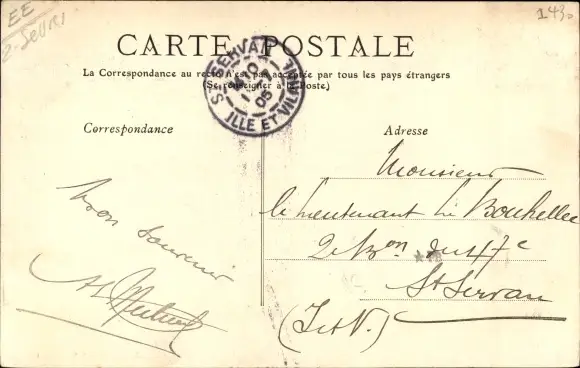 EE
2-Sevres
1430
CARTE POSTALE
La Correspondance au recto n'est pas acceptée par tous les pays étrangers
(Se renseigner à la Poste)
ST SERVAN
05
ILLE ET VILAINE
Correspondance
Adresse
Bon souvenir
Monsieur
le Lieutenant Le Bouhellec
2e Bon du 47e
St Servan
(I et V.)